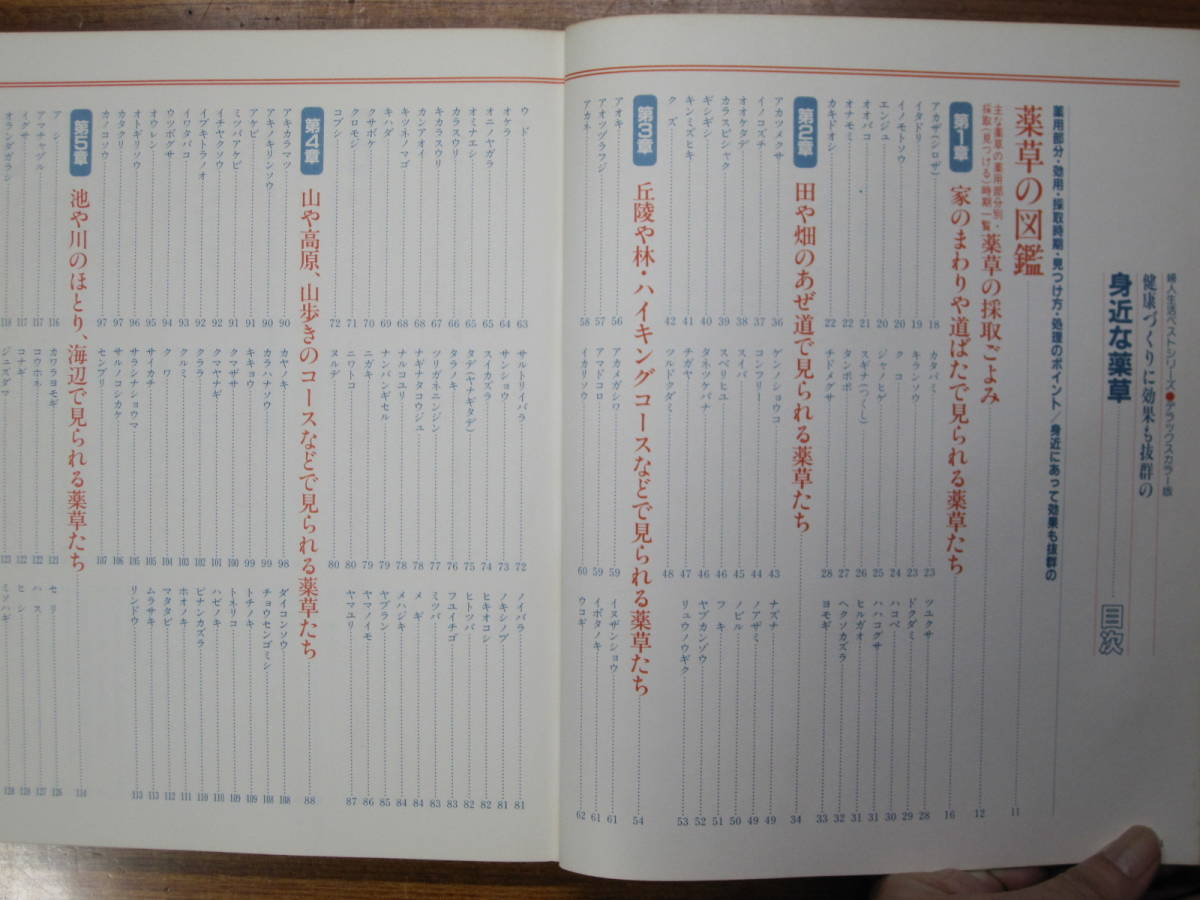 婦人生活ベストシリーズ●デラックスカラー版
健康づくりに効果も抜群の
身近な薬草 目次
薬用部分・効用・採取時期・見つけ方・処理のポイント/身近にあって効果も抜群の
薬草の図鑑 11
主な薬草の薬用部分別・採取(見つける)時期一覧 薬草の採取ごよみ 12
第1章 家のまわりや道ばたで見られる薬草たち 16
アカザ(シロザ) 18
イタドリ 19
イノモトソウ 20
エンジュ 20
オオバコ 21
オナモミ 22
カキドオシ 22
カタバミ 23
キランソウ 23
クコ 24
ジャノヒゲ 25
スギナ(つくし) 26
タンポポ 27
チドメグサ 28
ツユクサ 28
ドクダミ 29
ハコベ 30
ハハコグサ 31
ヒルガオ 31
ヘクソカズラ 32
ヨモギ 33
第2章 田や畑のあぜ道で見られる薬草たち 34
アカツメクサ 36
イノコズチ 37
オオケタデ 38
カラスビシャク 39
ギシギシ 40
キンミズヒキ 41
クズ 42
ゲンノショウコ 43
コンフリー 44
スイバ 45
スベリヒユ 46
タネツケバナ 46
チガヤ 47
ツルドクダミ 48
ナズナ 49
ノアザミ 49
ノビル 50
フキ 51
ヤブカンゾウ 52
リュウノウギク 53
第3章 丘陵や林・ハイキングコースなどで見られる薬草たち 54
アオキ 56
アオツヅラフジ 57
アカネ 58
アカメガシワ 59
アマドコロ 59
イカリソウ 60
イヌザンショウ 61
イボタノキ 61
ウコギ 62
ウド 63
オケラ 64
オニノヤガラ 65
オミナエシ 65
カラスウリ 66
キカラスウリ 66
カンアオイ 67
キツネノマゴ 68
キハダ 68
クサボケ 70
クロモジ 71
コブシ 72
サルトリイバラ 72
サンショウ 73
スイカズラ 74
タデ(ヤナギタデ) 75
タラノキ 76
ツリガネニンジン 77
ナギナタコウジュ 78
ナルコユリ 78
ナンバンギセル 79
ニガキ 79
ニワトコ 80
ヌルデ 80
ノイバラ 81
ノキシノブ 81
ヒキオコシ 82
ヒトツバ 82
フユイチゴ 83
ミツバ 83
メギ 84
メハジキ 84
ヤブラン 85
ヤマノイモ 86
ヤマユリ 87
第4章 山や高原、山歩きのコースなどで見られる薬草たち 88
アキカラマツ 90
アキノキリンソウ 90
アケビ 91
ミツバアケビ 91
イチヤクソウ 92
イブキトラノオ 92
イワタバコ 93
ウツボグサ 94
オウレン 95
オトギリソウ 96
カタクリ 96
カノコソウ 97
カヤノキ 98
カラハナソウ 99
キキョウ 99
クマザサ 100
クマヤナギ 101
クララ 101
クルミ 103
クワ 104
サイカチ 105
サラシナショウマ 105
サルノコシカケ 106
センブリ 107
ダイコンソウ 108
チョウセンゴミシ 108
トチノキ 109
トネリコ 109
ハゼノキ 110
ビナンカズラ 110
ホオノキ 111
マタタビ 112
ムラサキ 113
リンドウ 113
第5章 池や川のほとり、海辺で見られる薬草たち 114
アシ 116
アマチャヅル 117
イグサ 117
オランダガラシ 118
カワラヨモギ 121
コウホネ 122
コナギ 122
ジュズダマ 123
セリ 126
ハス 127
ヒシ 128
ミソハギ 128